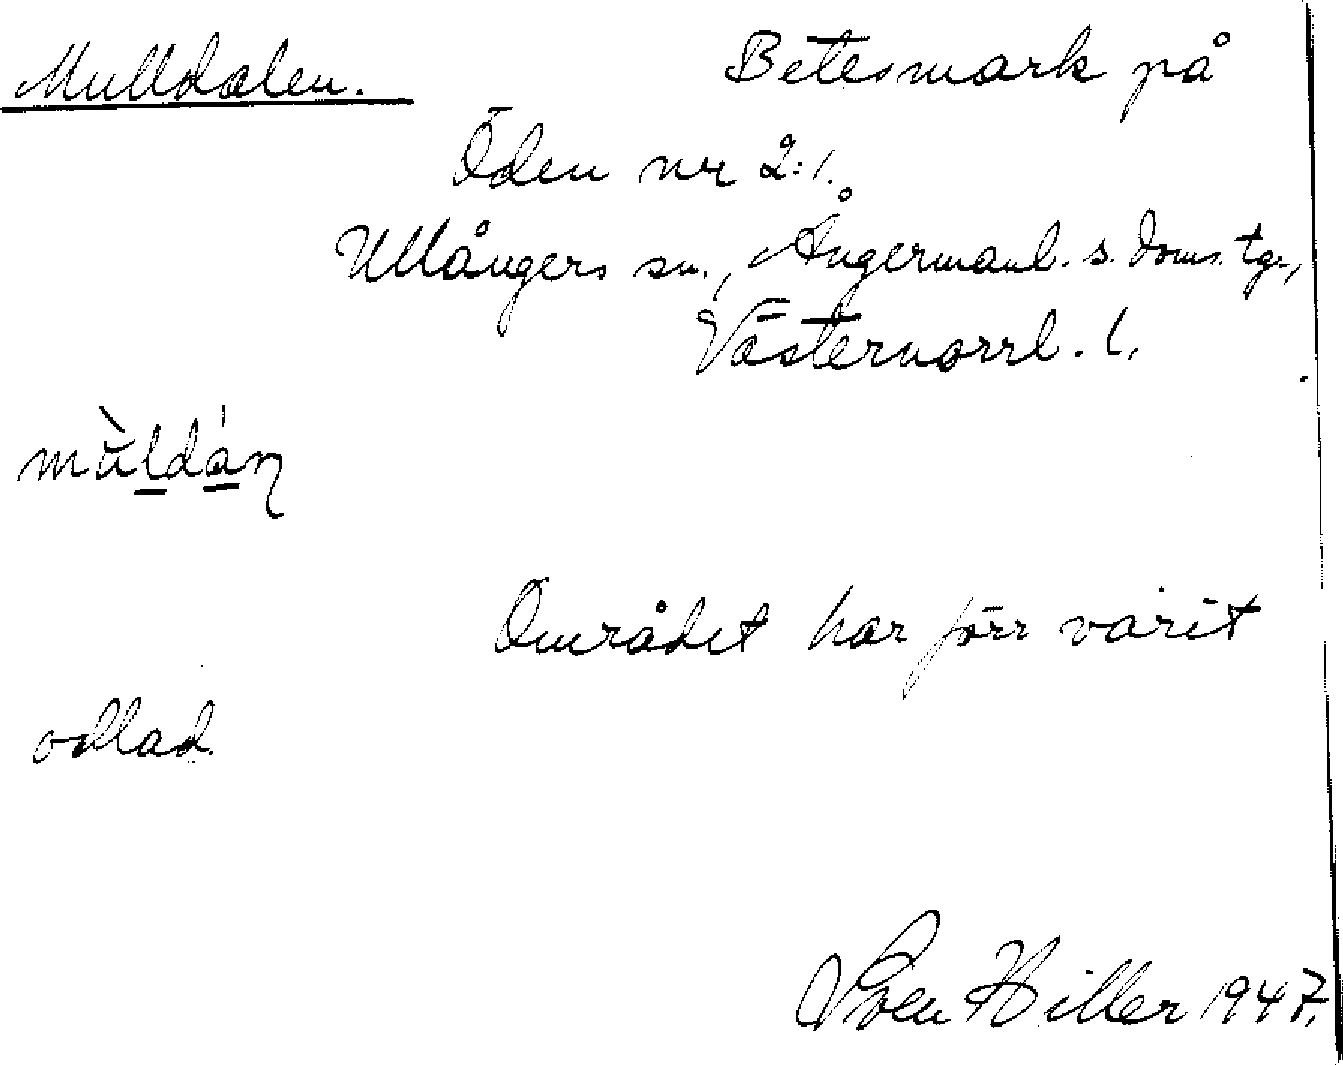 Mulldalen. Betesmark på
Öden nr 2:1.
Ullångers sn., Ångermanl. s. doms. tg.,
Västernorrl. l.
mùldán
Området har förr varit
odlad.
Sven Hiller 1947.